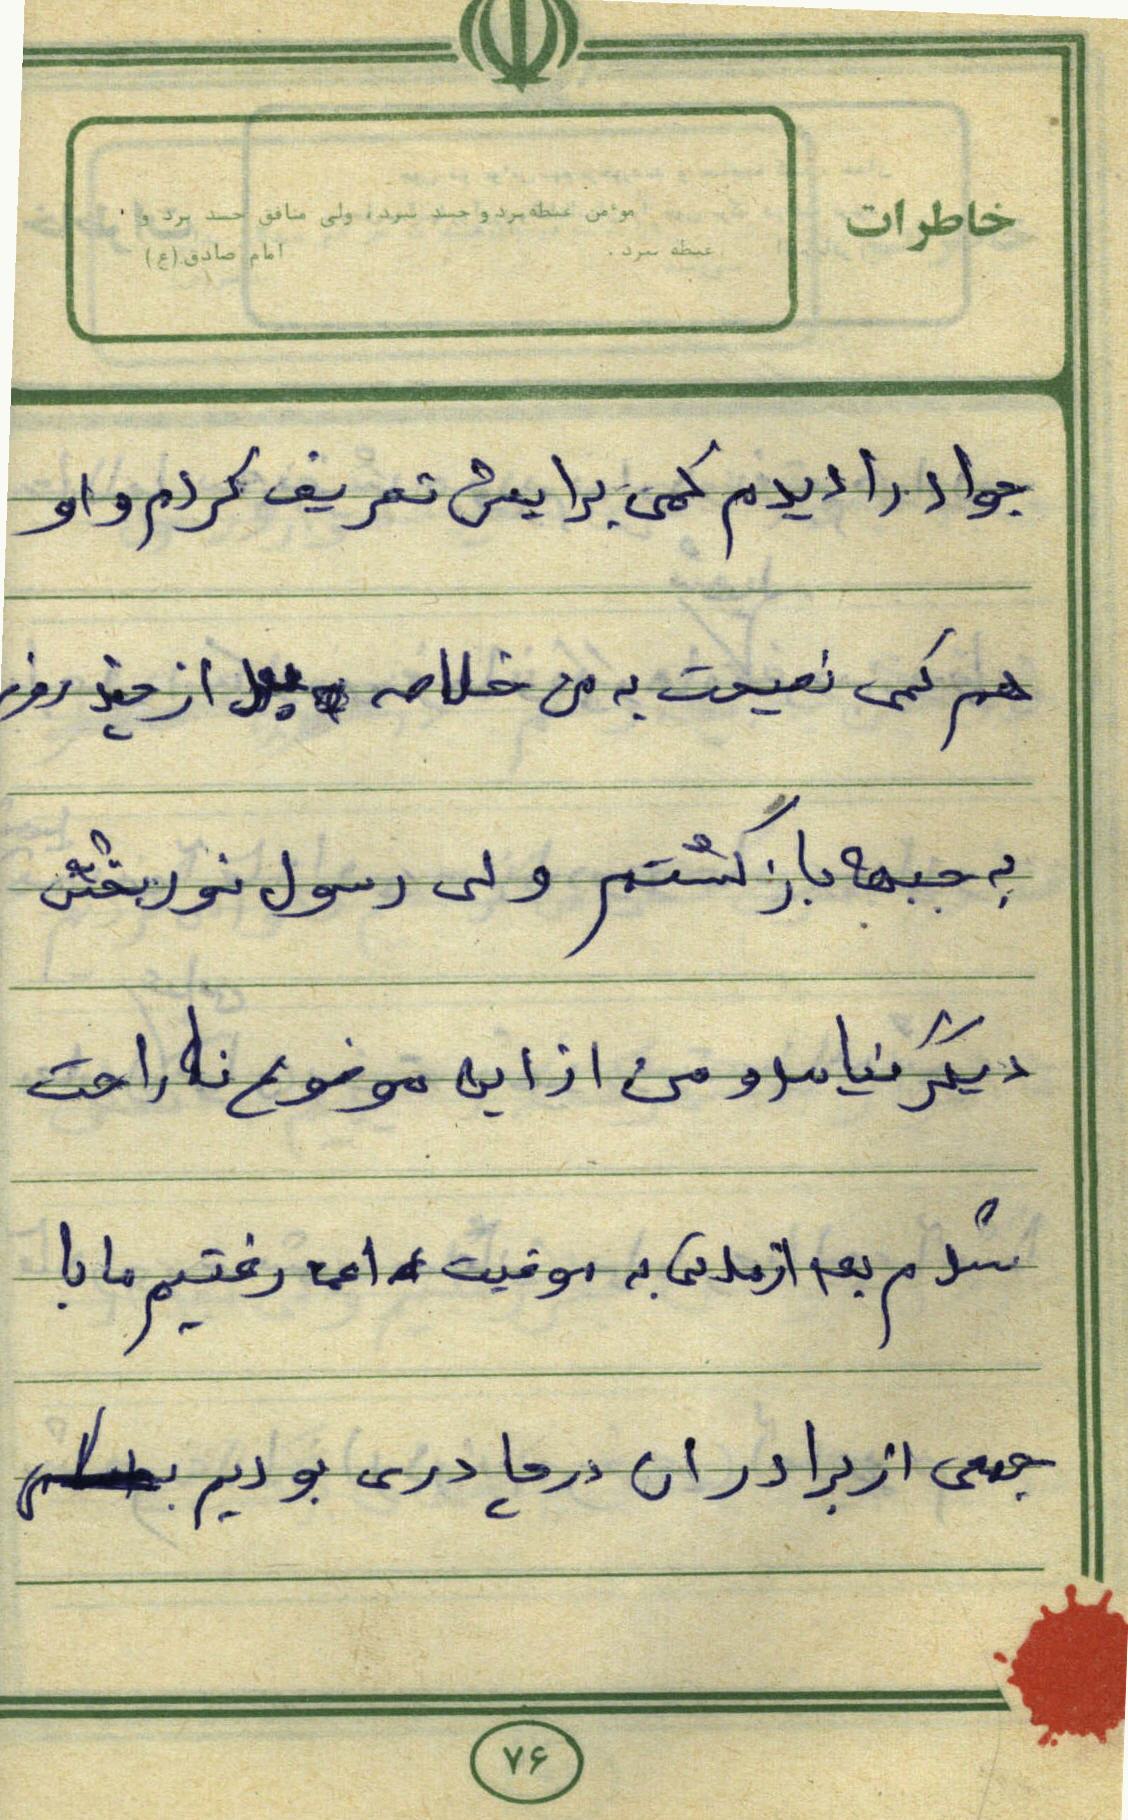 خاطرات
مو٬من غبطه برد و حسد نبرد، ولی منافق حسد برد و
غبطه نبرد .
امام صادق (ع)
جواد را دیدم کمی برایش تعریف کردم و او
هم کمی نصیحت به من خلاصه از چند روز
به جبهه بازگشتم ولی رسول نوربخش
دیگر نیامد و من از این موضوع ناراحت
شدم بعد از مدتی به موقیت رفتیم ما با
جمعی از برادران در چادری بودیم
۷۶